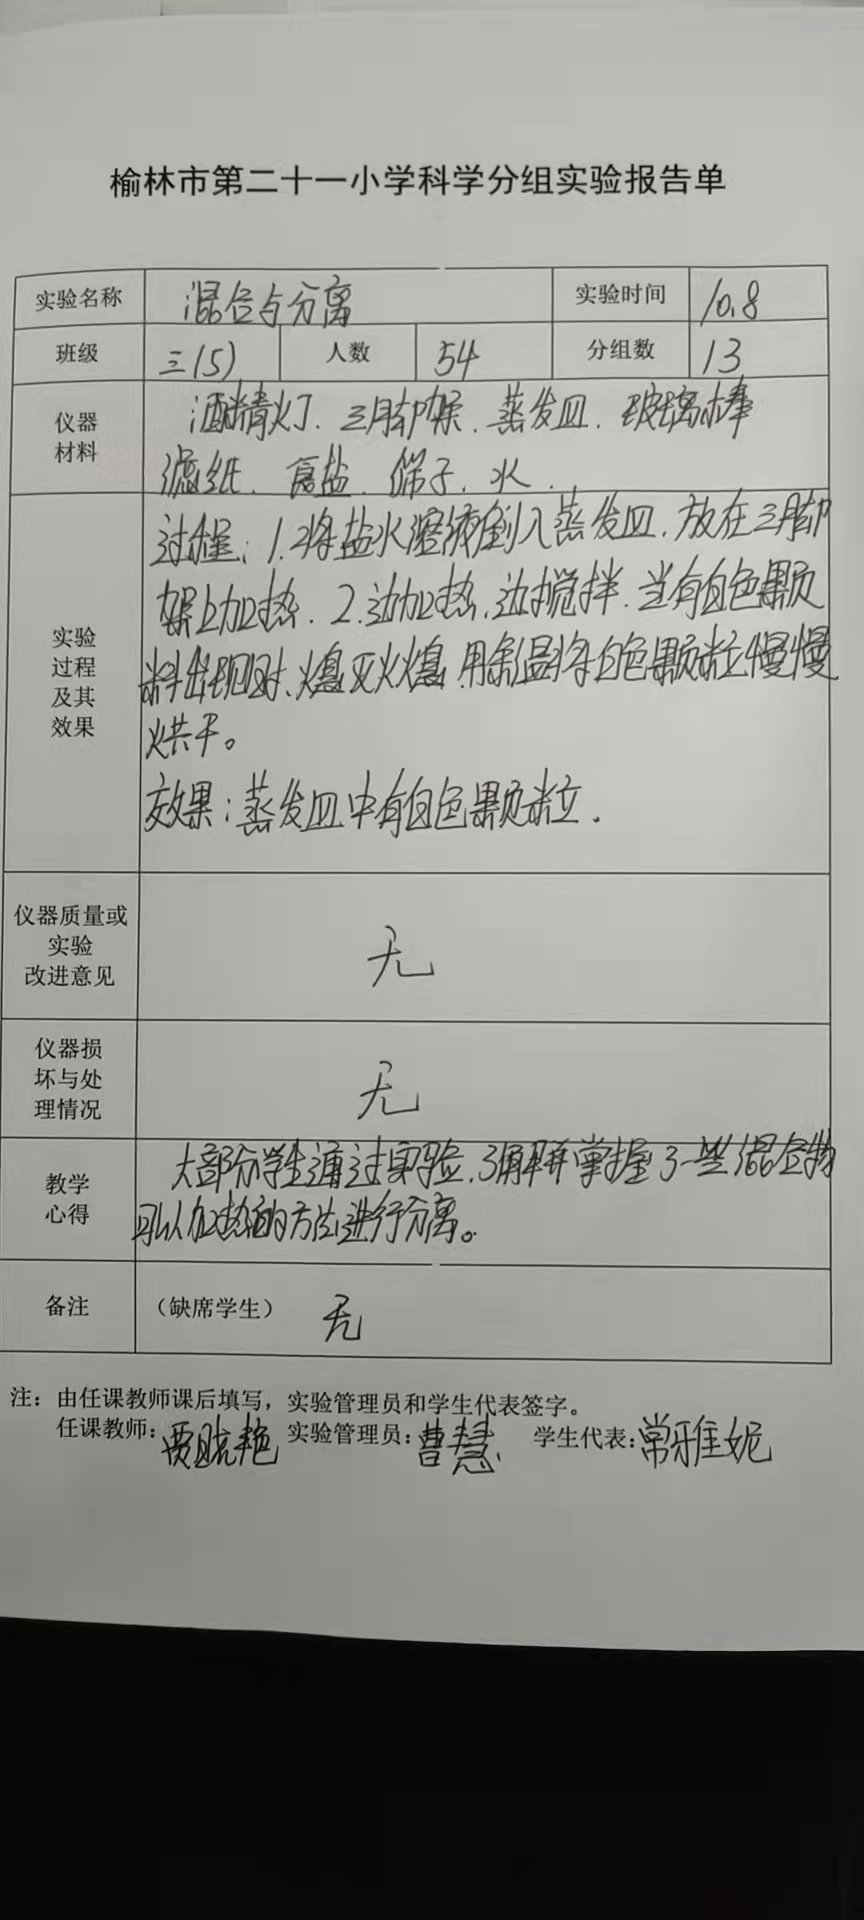 榆林市第二十一小学科学分组实验报告单
实验名称 混合与分离 实验时间 10.8
班级 三(5) 人数 54 分组数 13
仪器材料 酒精灯、三脚架、蒸发皿、玻璃棒
滤纸、食盐、筛子、水、
实验过程及其效果 过程:1.将盐水溶液倒入蒸发皿,放在三脚
架上加热.2.边加热,边搅拌.当有白色颗
料出现时、熄灭火熄.用余温将白色颗粒慢慢
烘干。
效果:蒸发皿中有白色颗粒.
仪器质量或实验改进意见 无
仪器损坏与处理情况 无
教学心得 大部分学生通过实验,了解并掌握了一些混合物
可以加热的方法进行分离。
备注 (缺席学生) 无
注:由任课教师课后填写,实验管理员和学生代表签字。
任课教师:贾晓艳 实验管理员:曹慧 学生代表:常雅妮